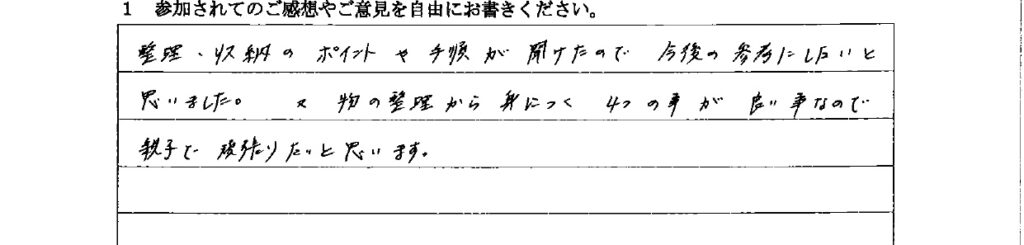 1 参加されてのご感想やご意見を自由にお書きください。
整理・収納のポイントや手順が聞けたので今後の参考にしたいと
思いました。 又 物の整理から身につく4つの事が良い事なので
親子で頑張りたいと思います。